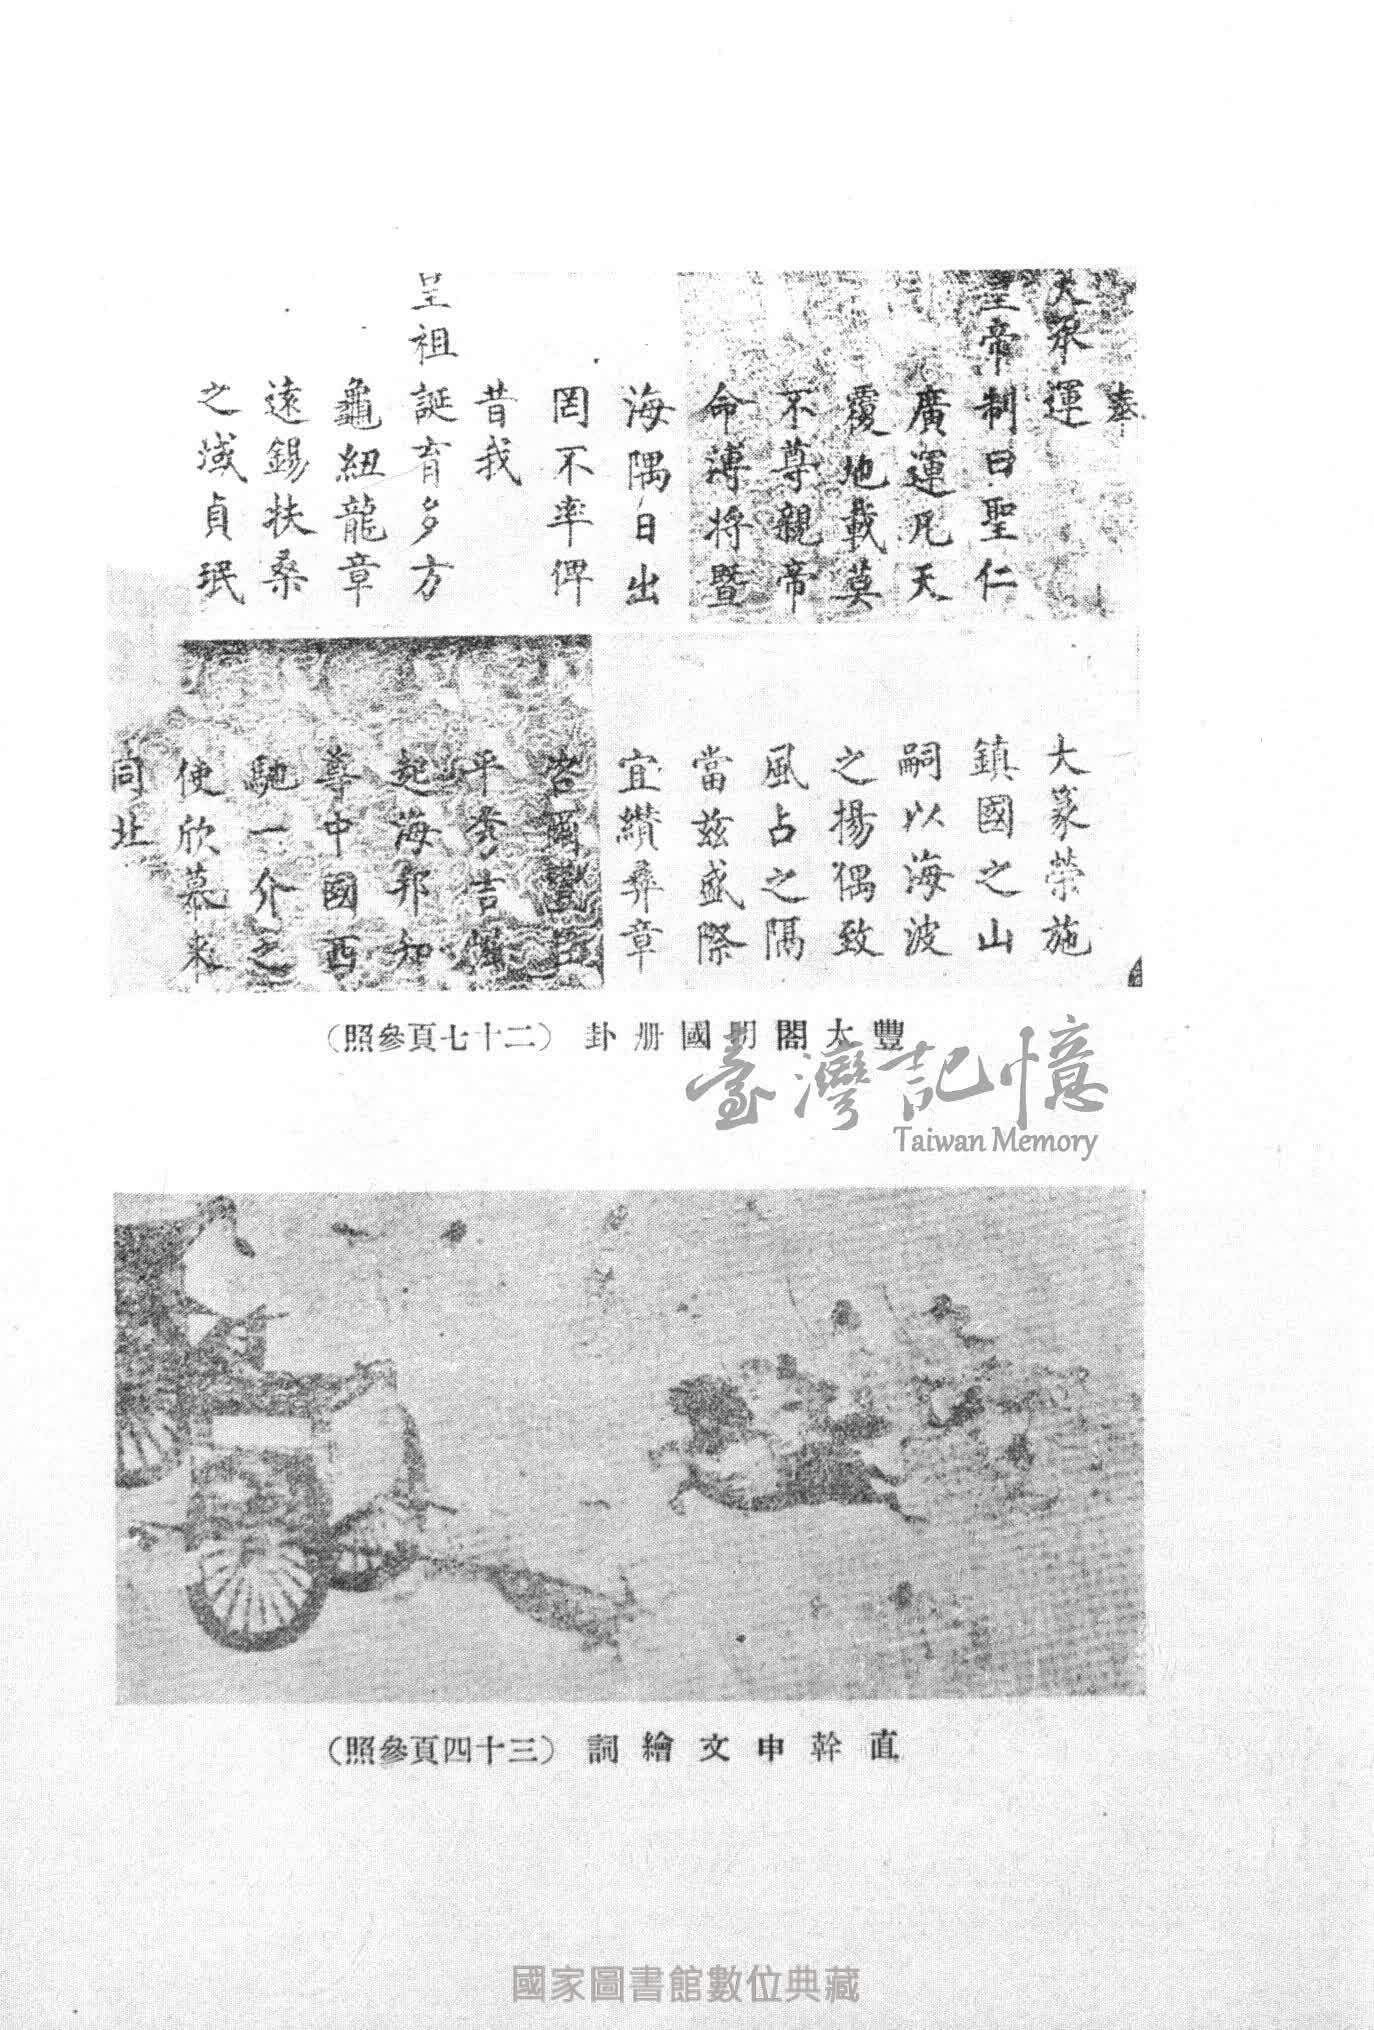 奉
天承運
皇帝制曰聖仁
廣運凡天
覆地載莫
不尊親帝
命溥將暨
海隅日出
罔不率俾
昔我
皇祖誕育多方
龜紐龍章
遠錫扶桑
之域貞珉
大篆榮施
鎮國之山
嗣以海波
之揚偶致
風占之隔
當茲盛際
宜纘彝章
咨爾豐臣
平秀吉崛
起海邦知
尊中國西
馳一介之
使欣慕來
同北
豐太閤明國册卦 (二十七頁參照)
臺灣記憶
Taiwan Memory
直幹申文繪詞 (三十四頁參照)
國家圖書館數位典藏